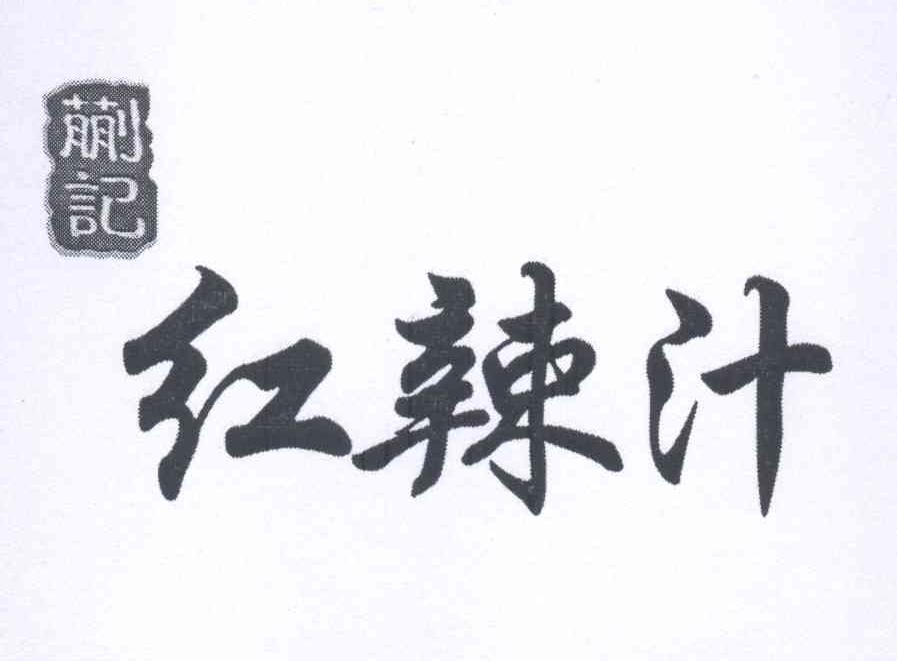 蒯記
红辣汁